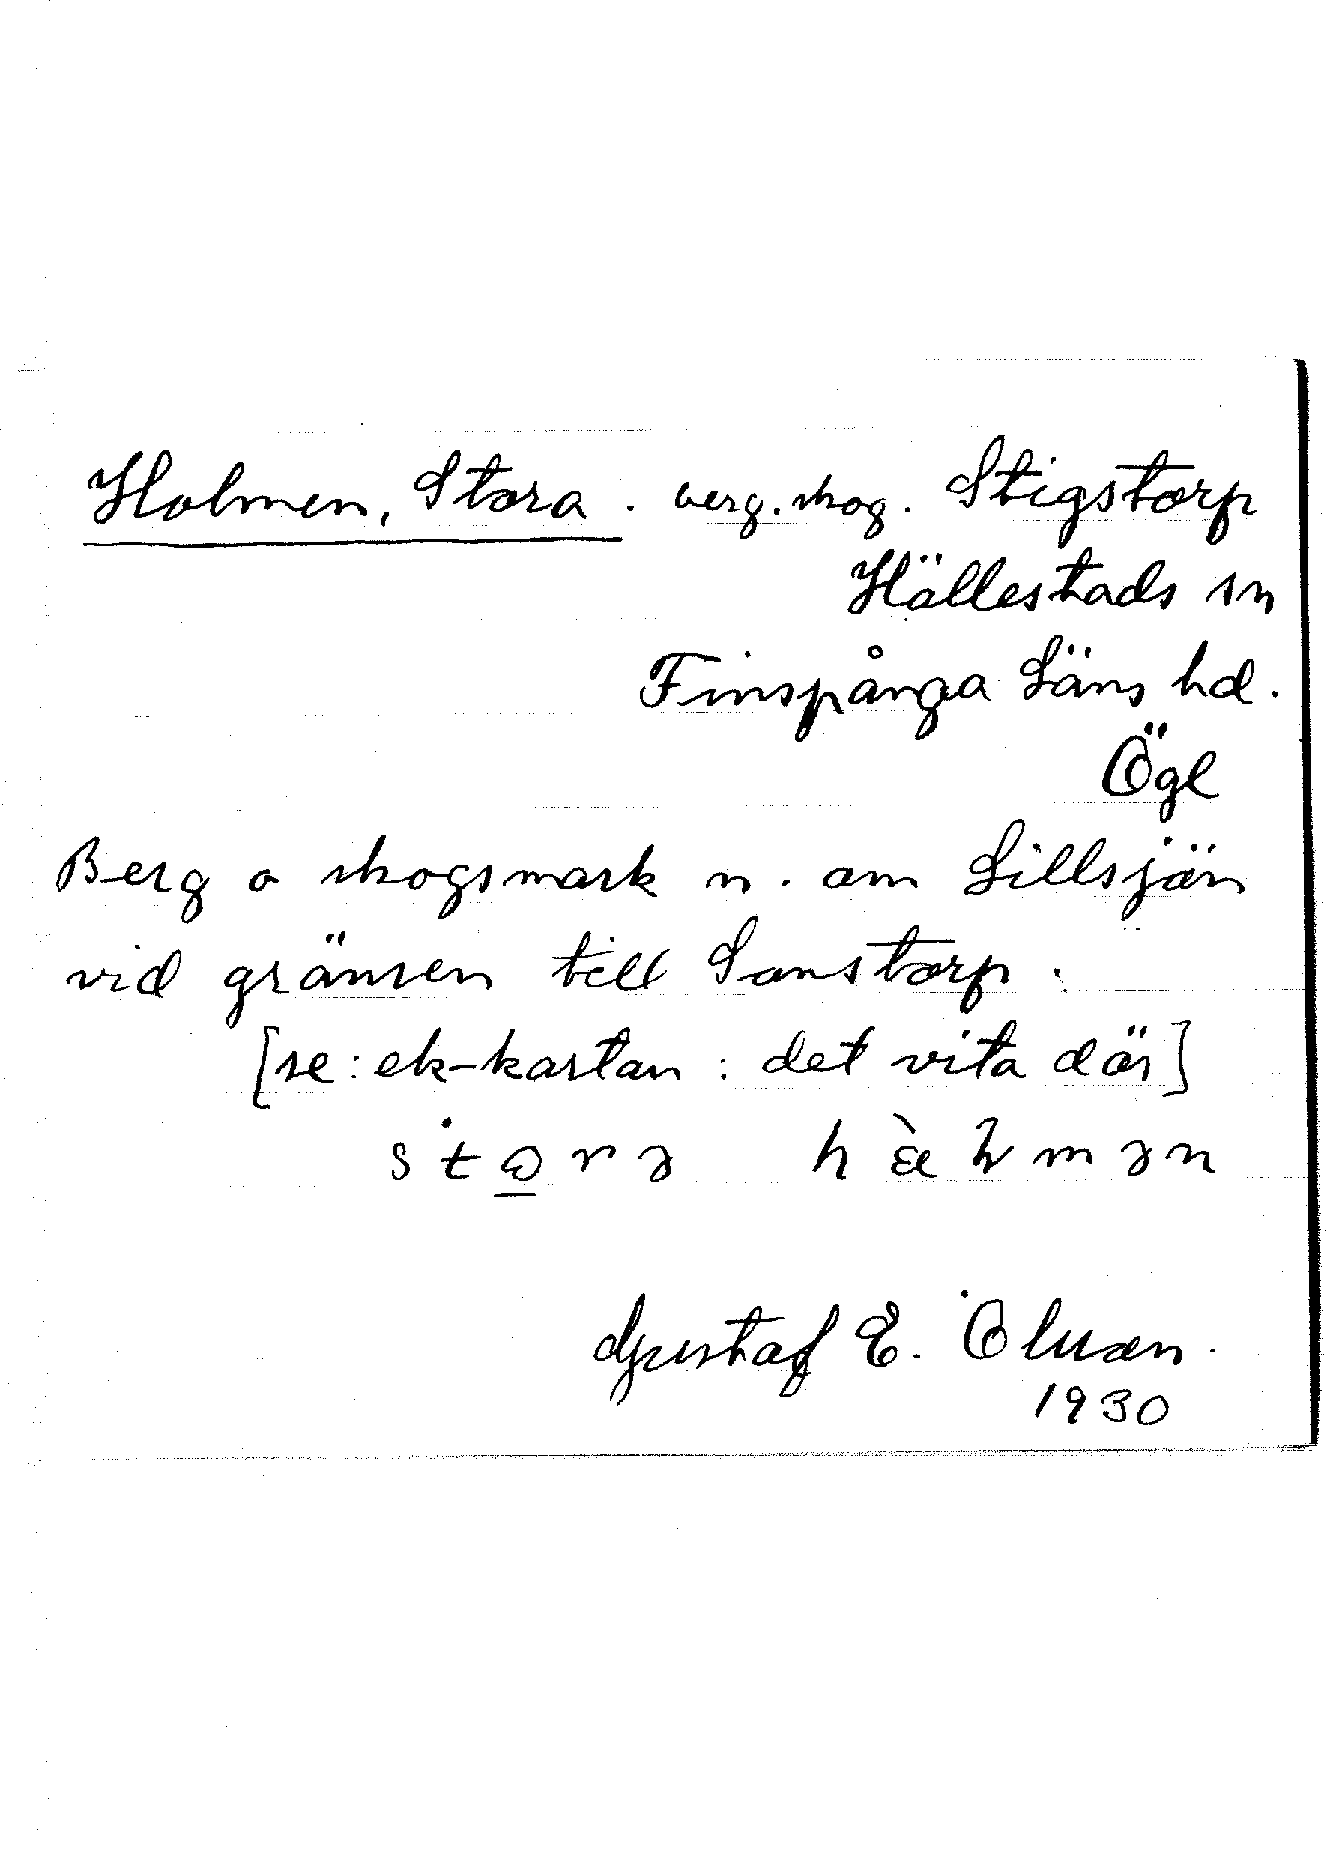 Holmen, Stora. berg. skog. Stigstorp
Hällestads sn
Finspånga Läns hd.
Ögl
Berg o skogsmark n. om Lillsjön
vid gränsen till Sonstorp.
[se: ek-kartan: det vita där]
Gustaf E. Olsson.
1930